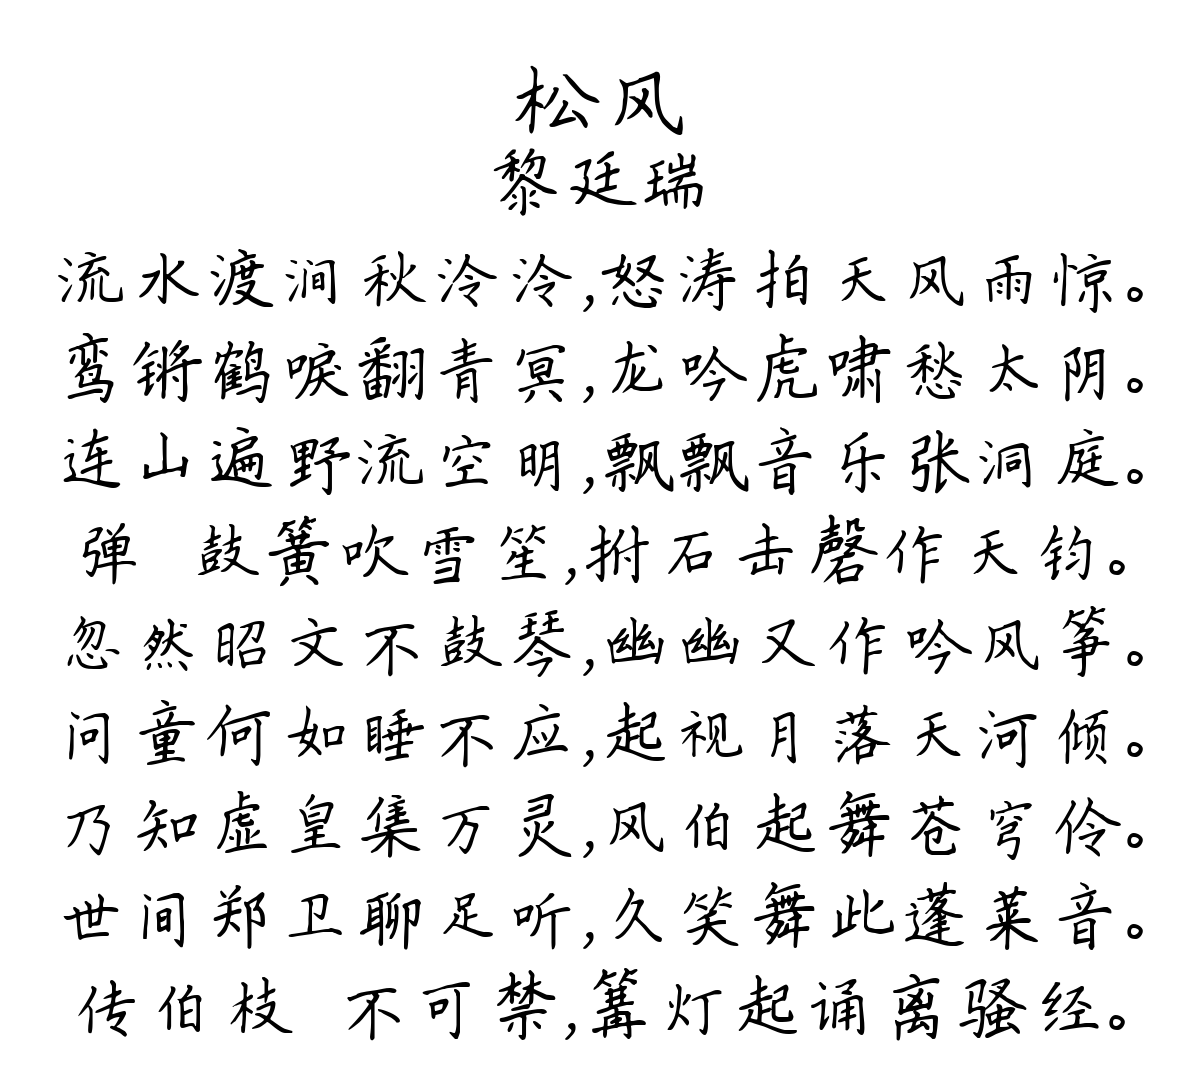 松风
黎廷瑞
流水渡涧秋泠泠,怒涛拍天风雨惊。
鸾锵鹤唳翻青冥,龙吟虎啸愁太阴。
连山遍野流空明,飘飘音乐张洞庭。
弹 鼓簧吹雪笙,拊石击磬作天钧。
忽然昭文不鼓琴,幽幽又作吟风筝。
问童何如睡不应,起视月落天河倾。
乃知虚皇集万灵,风伯起舞苍穹伶。
世间郑卫聊足听,久笑舞此蓬莱音。
传伯枝 不可禁,篝灯起诵离骚经。